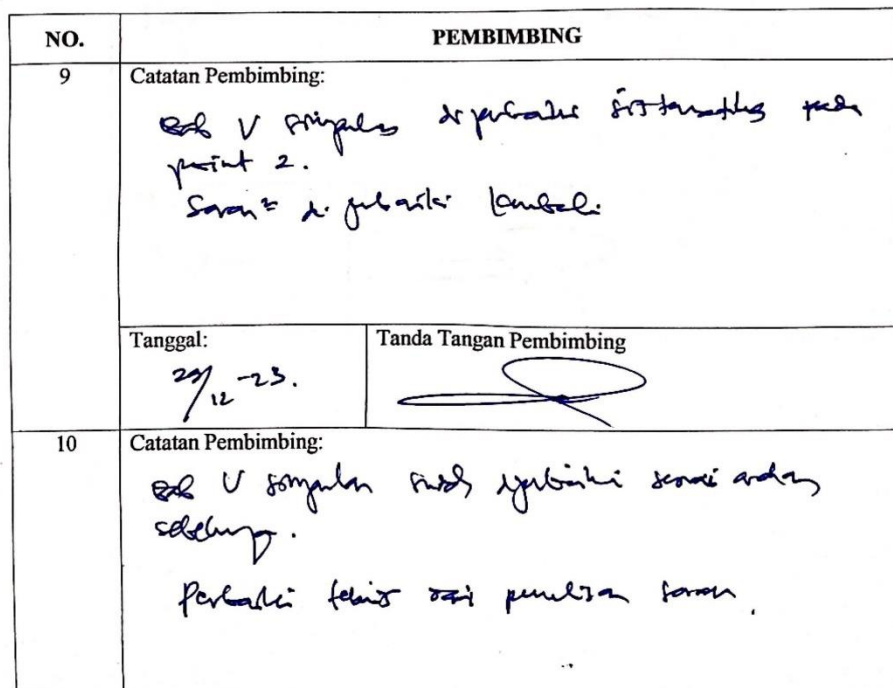 NO. PEMBIMBING
9 Catatan Pembimbing:
Bab V simpulan diperbaiki sistematika pada
point 2.
Saran² diperbaiki kembali
Tanggal: Tanda Tangan Pembimbing
29/12-23.
10 Catatan Pembimbing:
Bab V simpulan sudah diperbaiki sesuai arahan
sebelumnya.
Perbaiki teknis dari penulisan saran.